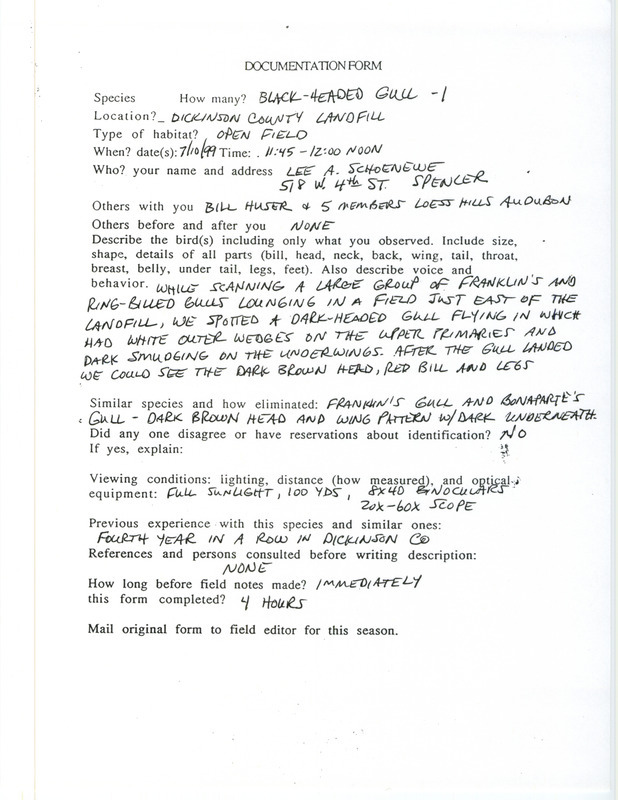 DOCUMENTATION FORM
Species How many? BLACK-HEADED GULL -1
Location?_ DICKINSON COUNTY LANDFILL
Type of habitat? OPEN FIELD
When? date(s): 7/10/99 Time: . 11:45 - 12:00 NOON
Who? your name and address LEE A. SCHOENEWE
518 W. 4th ST. SPENCER
Others with you BILL HUSER & 5 MEMBERS LOESS HILLS AUDUBON
Others before and after you NONE
Describe the bird(s) including only what you observed. Include size,
shape, details of all parts (bill, head, neck, back, wing, tail, throat,
breast, belly, under tail, legs, feet). Also describe voice and
behavior. WHILE SCANNING A LARGE GROUP OF FRANKLIN'S AND
RING-BILLED GULLS LOUNGING IN A FIELD JUST EAST OF THE
LANDFILL, WE SPOTTED A DARK-HEADED GULL FLYING IN WHICH
HAD WHITE OUTER WEDGES ON THE UPPER PRIMARIES AND
DARK SMUDGING ON THE UNDERWINGS. AFTER THE GULL LANDED
WE COULD SEE THE DARK BROWN HEAD, RED BILL AND LEGS
Similar species and how eliminated: FRANKLIN'S GULL AND BONAPARTE'S
GULL - DARK BROWN HEAD AND WING PATTERN W/DARK UNDERNEATH
Did any one disagree or have reservations about identification? NO
If yes, explain:
Viewing conditions: lighting, distance (how measured), and optical
equipment: FULL SUNLIGHT, 100 YDS, 8X40 BINOCULARS
20X-60X SCOPE
Previous experience with this species and similar ones:
FOURTH YEAR IN A ROW IN DICKINSON CO
References and persons consulted before writing description:
NONE
How long before field notes made? IMMEDIATELY
this form completed? 4 HOURS
Mail original form to field editor for this season.